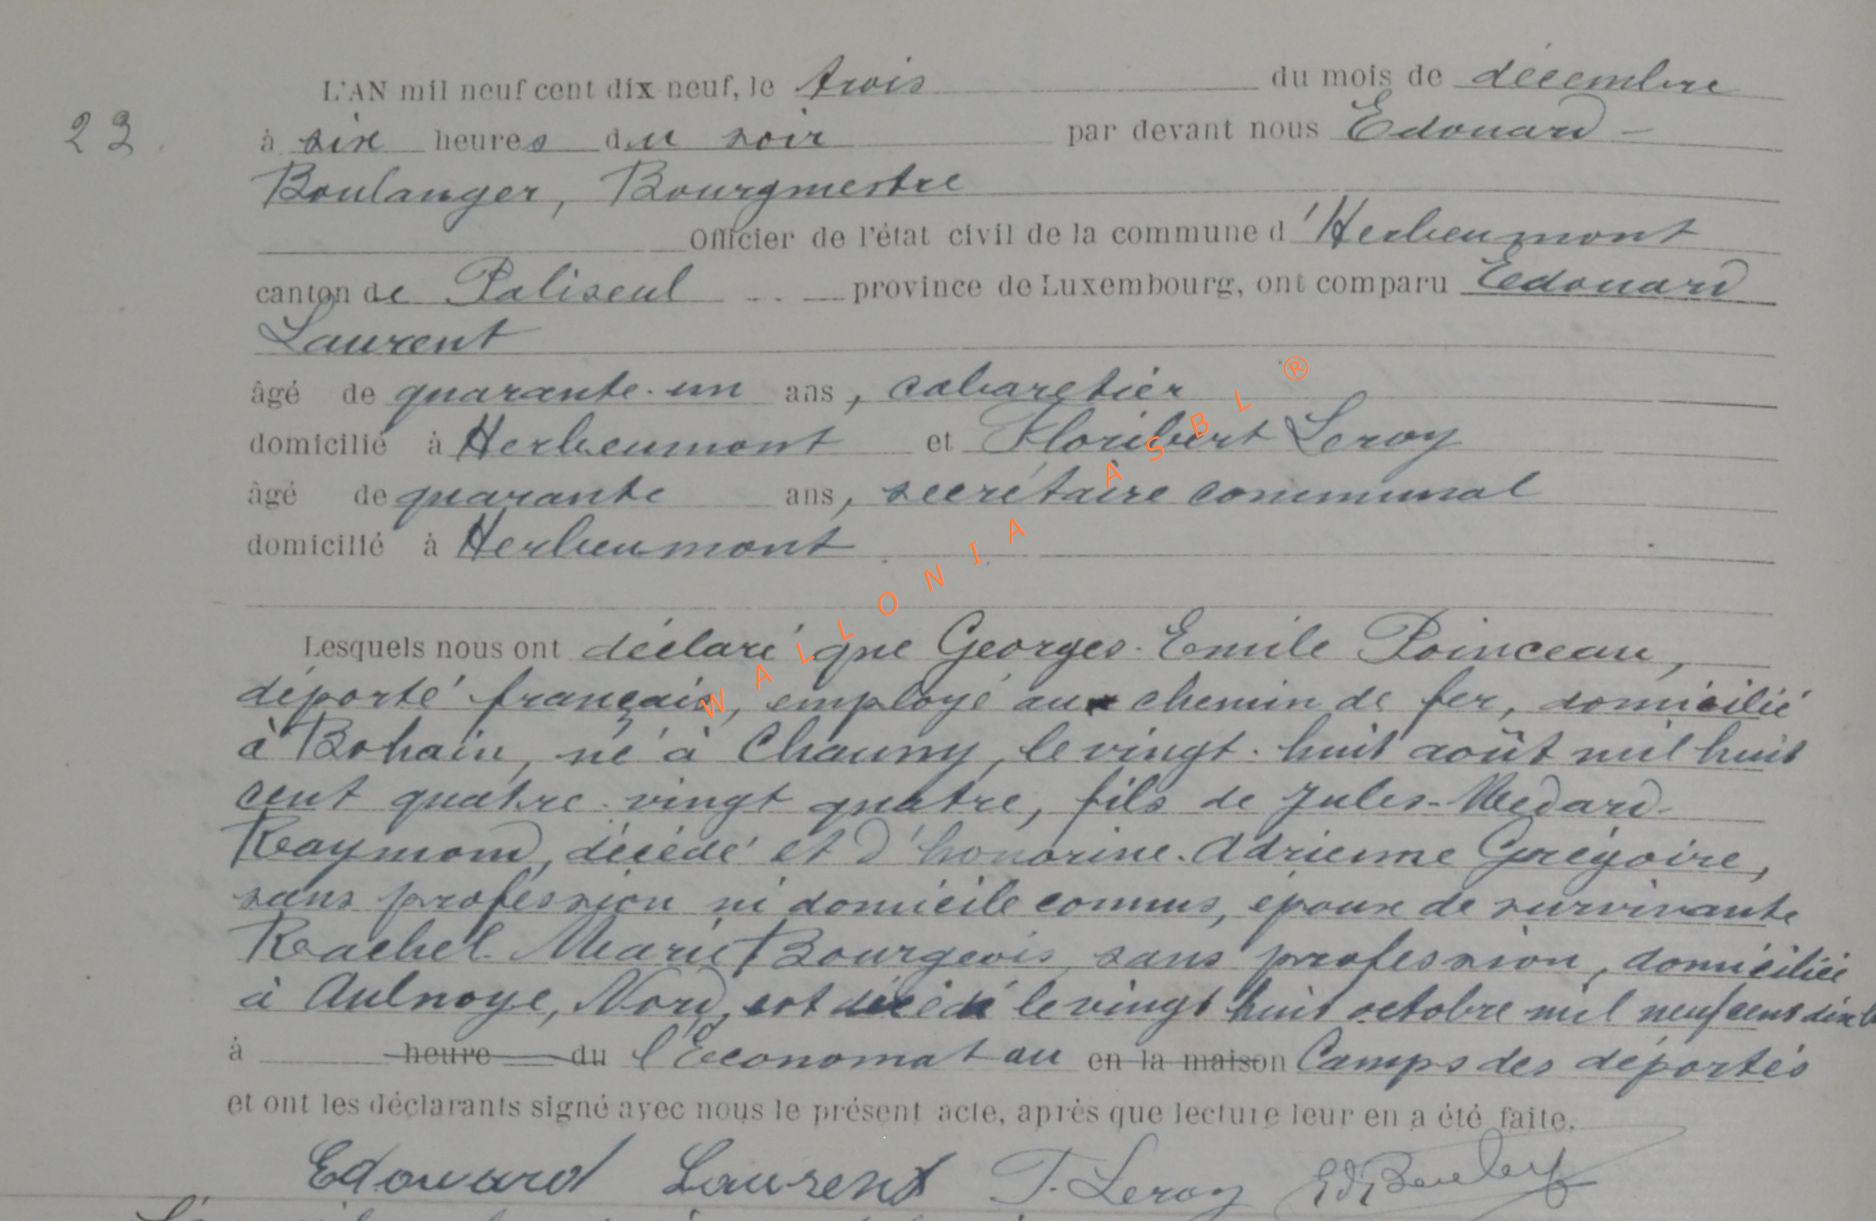 L'AN mil neuf cent dix-neuf, le trois du mois de décembre
23. à six heures du soir par devant nous Edouard -
Boulanger, Bourgmestre
Officier de l'état civil de la commune d'Herbeumont
canton de Paliseul province de Luxembourg, ont comparu Edouard
Laurent
âgé de quarante-un ans, cabaretier
domicilié à Herbeumont et Floribert Leroy
âgé de quarante ans, secrétaire communal
domicilié à Herbeumont
WALLONIA ASBL ®
Lesquels nous ont déclaré que Georges-Emile Poinceau,
déporté français, employé au chemin de fer, domicilié
à Bohain, né à Chauny, le vingt-huit août mil huit
cent quatre-vingt quatre, fils de Jules-Médard-
Raymond, décédé et d'honorine-Adrienne Grégoire,
sans profession ni domicile connus, époux de survivante
Rachel-Marie Bourgeois sans profession, domiciliée
à Aulnoye, Nord, est décédé le vingt huit octobre mil neuf cent dix
à heure du l'Economat au en la maison Camps des déportés
et ont les déclarants signé avec nous le présent acte, après que lecture leur en a été faite.
Edouard Laurent F. Leroy